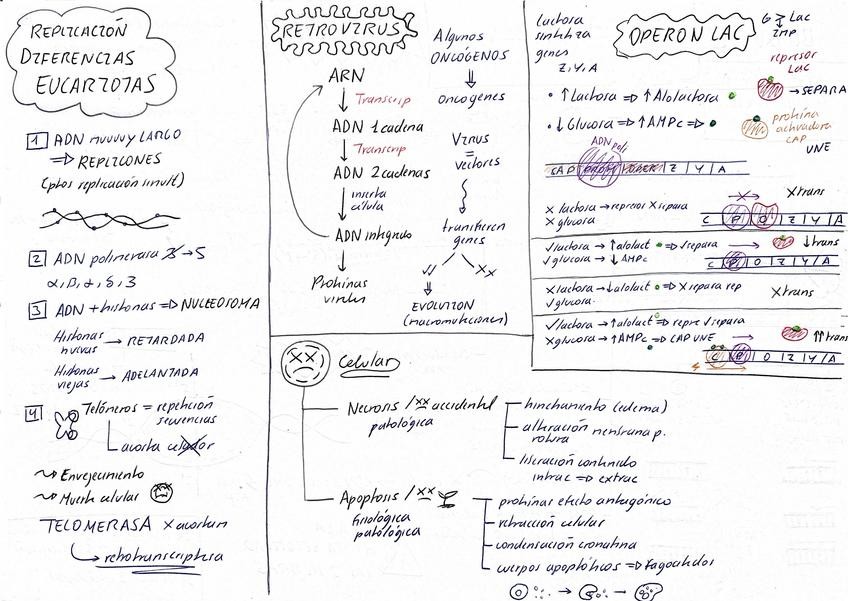 REPLICACIÓN
DIFERENCIAS
EUCARIOTAS
1 ADN muuuy LARGO
⇒ REPLICONES
(ptos replicación simult)
2 ADN polimerasa → 5
α, β, γ, δ, ε
3 ADN + histonas ⇒ NUCLEOSOMA
Histonas nuevas → RETARDADA
Histonas viejas → ADELANTADA
4 Telómeros = repetición
secuencias
acorta
Envejecimiento
Muerte celular
TELOMERASA x acortan
retrotranscriptasa
RETROVIRUS
ARN
Transcrip
ADN 1 cadena
Transcrip
ADN 2 cadenas
inserta
célula
ADN integrado
Proteínas
virales
Algunos
ONCÓGENOS
oncogenes
VIRUS
=
vectores
transfieren
genes
EVOLUCIÓN
(macromutaciones)
OPERON LAC
lactosa
sintetiza
genes
Z, Y, A
represor
Lac
• ↑ Lactosa ⇒ ↑ Alolactosa → SEPARA
• ↓ Glucosa ⇒ ↑ AMPc ⇒
proteína
activadora
CAP
UNE
ADN poli
CAP Z Y A
X trans
X lactosa → represor X separa
X glucosa
C P O Z Y A
✓ lactosa → ↑ alolact ⇒ ✓ separa → ↓ trans
✓ glucosa → ↓ AMPc
C P O Z Y A
X lactosa → ↓ alolact ⇒ X separa rep X trans
✓ glucosa
✓ lactosa → ↑ alolact ⇒ repre ✓ separa
X glucosa → ↑ AMPc ⇒ CAP UNE → ↑↑ trans
C P O Z Y A
Celular
Necrosis / xx accidental
patológica
hinchamiento (edema)
alteración membrana p.
rotura
liberación contenido
intrac ⇒ extrac
Apoptosis / xx
fisiológica
patológica
proteínas efecto antagónico
retracción celular
condensación cromatina
cuerpos apoptóticos ⇒ fagocitados